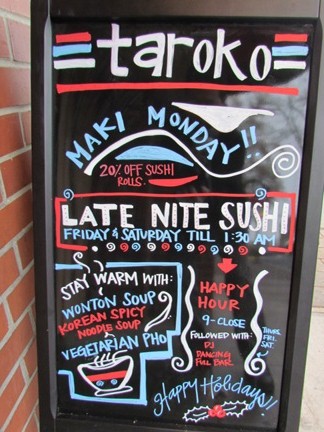 taroko
MAKI MONDAY!!
20% OFF SUSHI
ROLLS.
LATE NITE SUSHI
FRIDAY & SATURDAY TILL 1:30 AM
STAY WARM WITH:
WONTON SOUP
KOREAN SPICY
NOODLE SOUP
VEGETARIAN PHO
HAPPY
HOUR
9-CLOSE
FOLLOWED WITH:
DJ
DANCING
FULL BAR
THURS
FRI.
SAT.
Happy Holidays!!